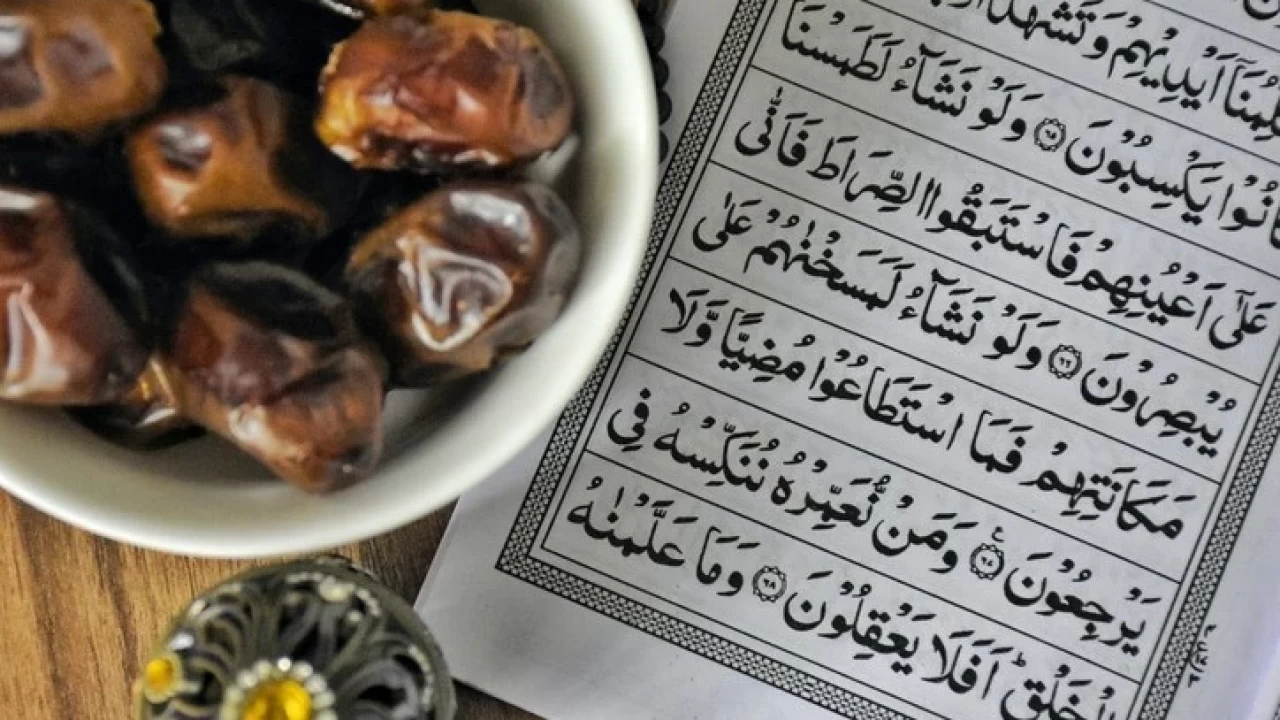 وَتَشْهَدُ
اَيْدِيْهِمْ وَتَشْهَدُ
يَكْسِبُوْنَ ۝۶۵ وَلَوْ نَشَآءُ لَطَمَسْنَا
عَلٰٓى اَعْيُنِهِمْ فَاسْتَبَقُوا الصِّرَاطَ فَاَنّٰى
يُبْصِرُوْنَ ۝۶۶ وَلَوْ نَشَآءُ لَمَسَخْنٰهُمْ عَلٰى
مَكَانَتِهِمْ فَمَا اسْتَطَاعُوْا مُضِيًّا وَّلَا
يَرْجِعُوْنَ ۝۶۷ وَمَنْ نُّعَمِّرْهُ نُنَكِّسْهُ فِى
الْخَلْقِ ؕ اَفَلَا يَعْقِلُوْنَ ۝۶۸ وَمَا عَلَّمْنٰهُ